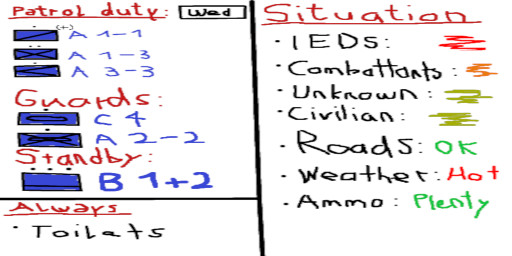 Patrol duty: Wed
(+) A 1-1
A 1-3
A 3-3
Guards:
C 4
A 2-2
Standby:
B 1+2
Always
• Toilets
Situation
• IEDS:
• Combattants:
• Unknown:
• Civilian:
• Roads: OK
• Weather: Hot
• Ammo: Plenty